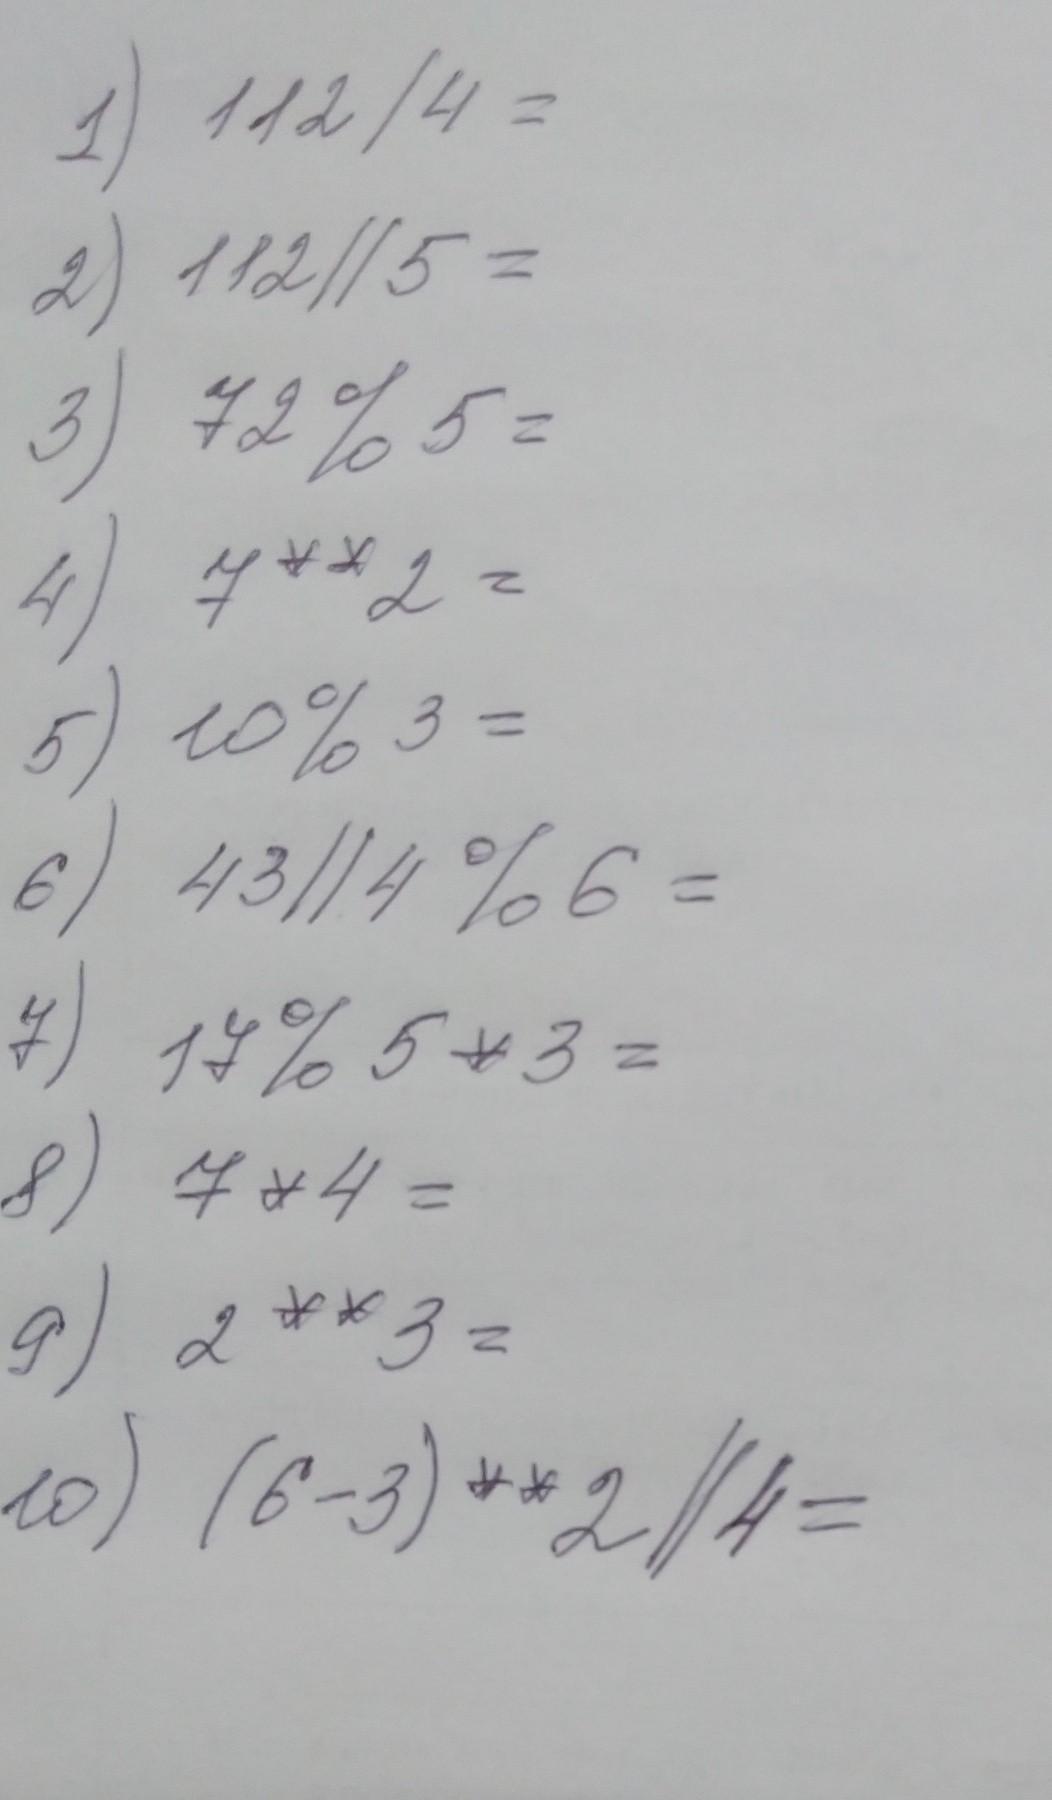 1) 112/4=
2) 112//5=
3) 72%5=
4) 7**2=
5) 10%3=
6) 43//4%6=
7) 17%5*3=
8) 7*4=
9) 2**3=
10) (6-3)**2//4=